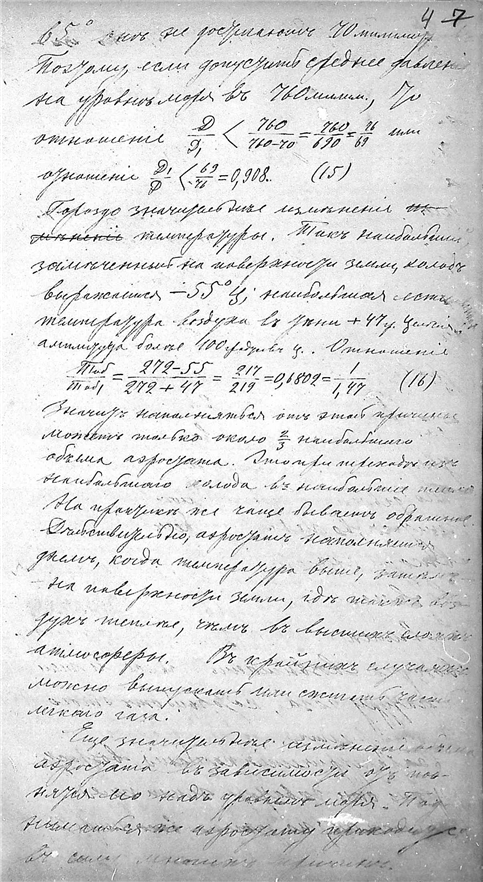 47
65° они не достигают 70 милим.
Поэтому, если допустить среднее давление
на уровне моря въ 760 милим., то
отношеніе Д/Д₁ < 760/(760-70) = 760/690 = 76/69 или
отношеніе Д₁/Д < 69/76 = 0,908. (15)
Гораздо значительнѣе измѣненіе
температуры. Такъ наибольшій
замѣченный на поверхности земли, холодъ
выражается –55° Ц; наибольшая есть
температура воздуха въ тѣни +47 гр. Цельсія
амплитуда более 100 градусовъ ц.. Отношеніе
Тоб/Тоб₁ = (272–55)/(272+47) = 217/219 = 0,6802 = 1/1,47 (16)
Значитъ наполняться отъ этой причины
можетъ только около 2/3 наибольшаго
объема аэростата. Это при переходѣ изъ
наибольшаго холода въ наибольшее тепло
На практикѣ же чаще бываетъ обратное.
Дѣйствительно, аэростатъ наполняется
днемъ, когда температура выше, затѣмъ
на поверхности земли, гдѣ воз-
духъ теплѣе, чѣмъ въ высшихъ слояхъ
атмосферы. Въ крайнихъ случаяхъ
можно выпускать или сжигать часть
легкаго газа.
Еще значительнѣе измѣненіе объема
аэростата въ зависимости отъ под-
нятія его надъ уровнемъ моря. Под-
ниматься же аэростату приходится
въ силу многихъ причинъ.